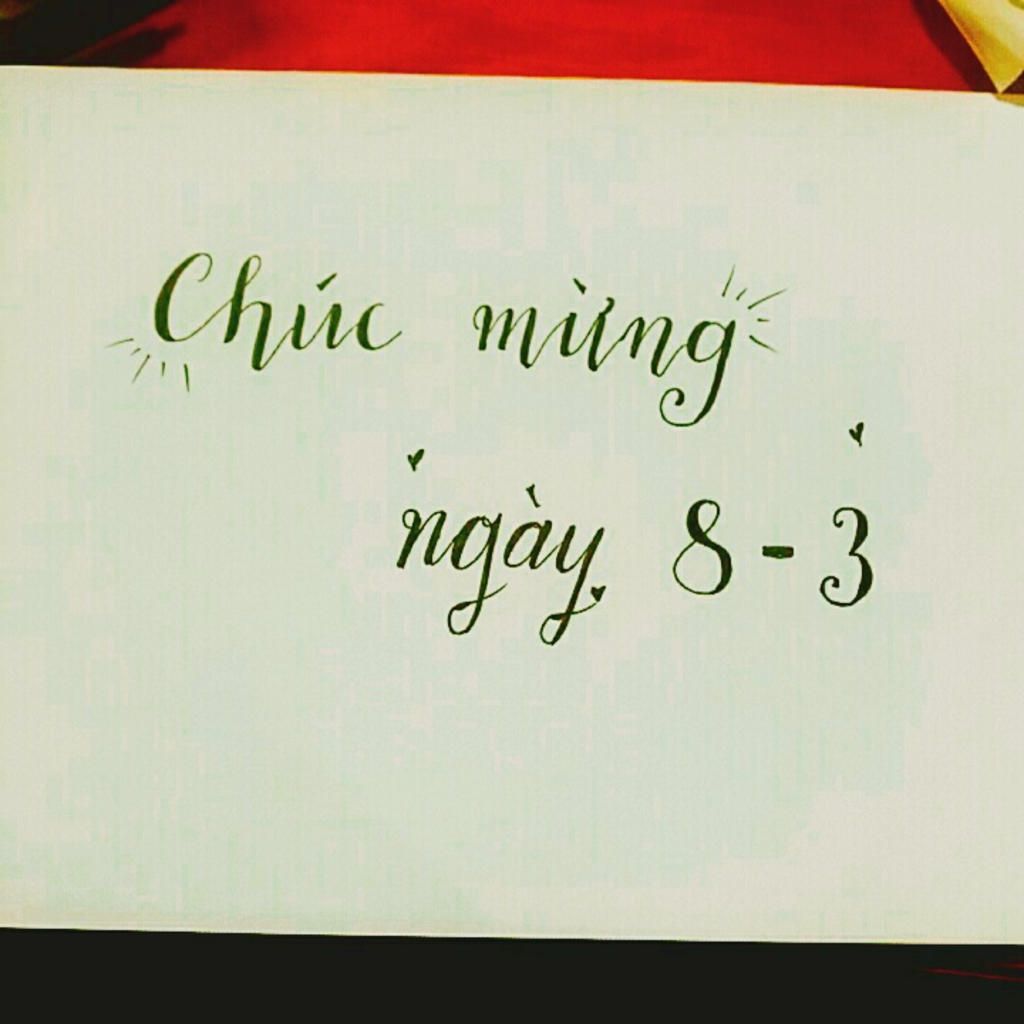 Chúc mừng
ngày 8-3